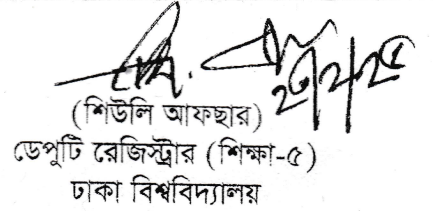 (শিউলি আফছার)
ডেপুটি রেজিস্ট্রার (শিক্ষা-৫)
ঢাকা বিশ্ববিদ্যালয়